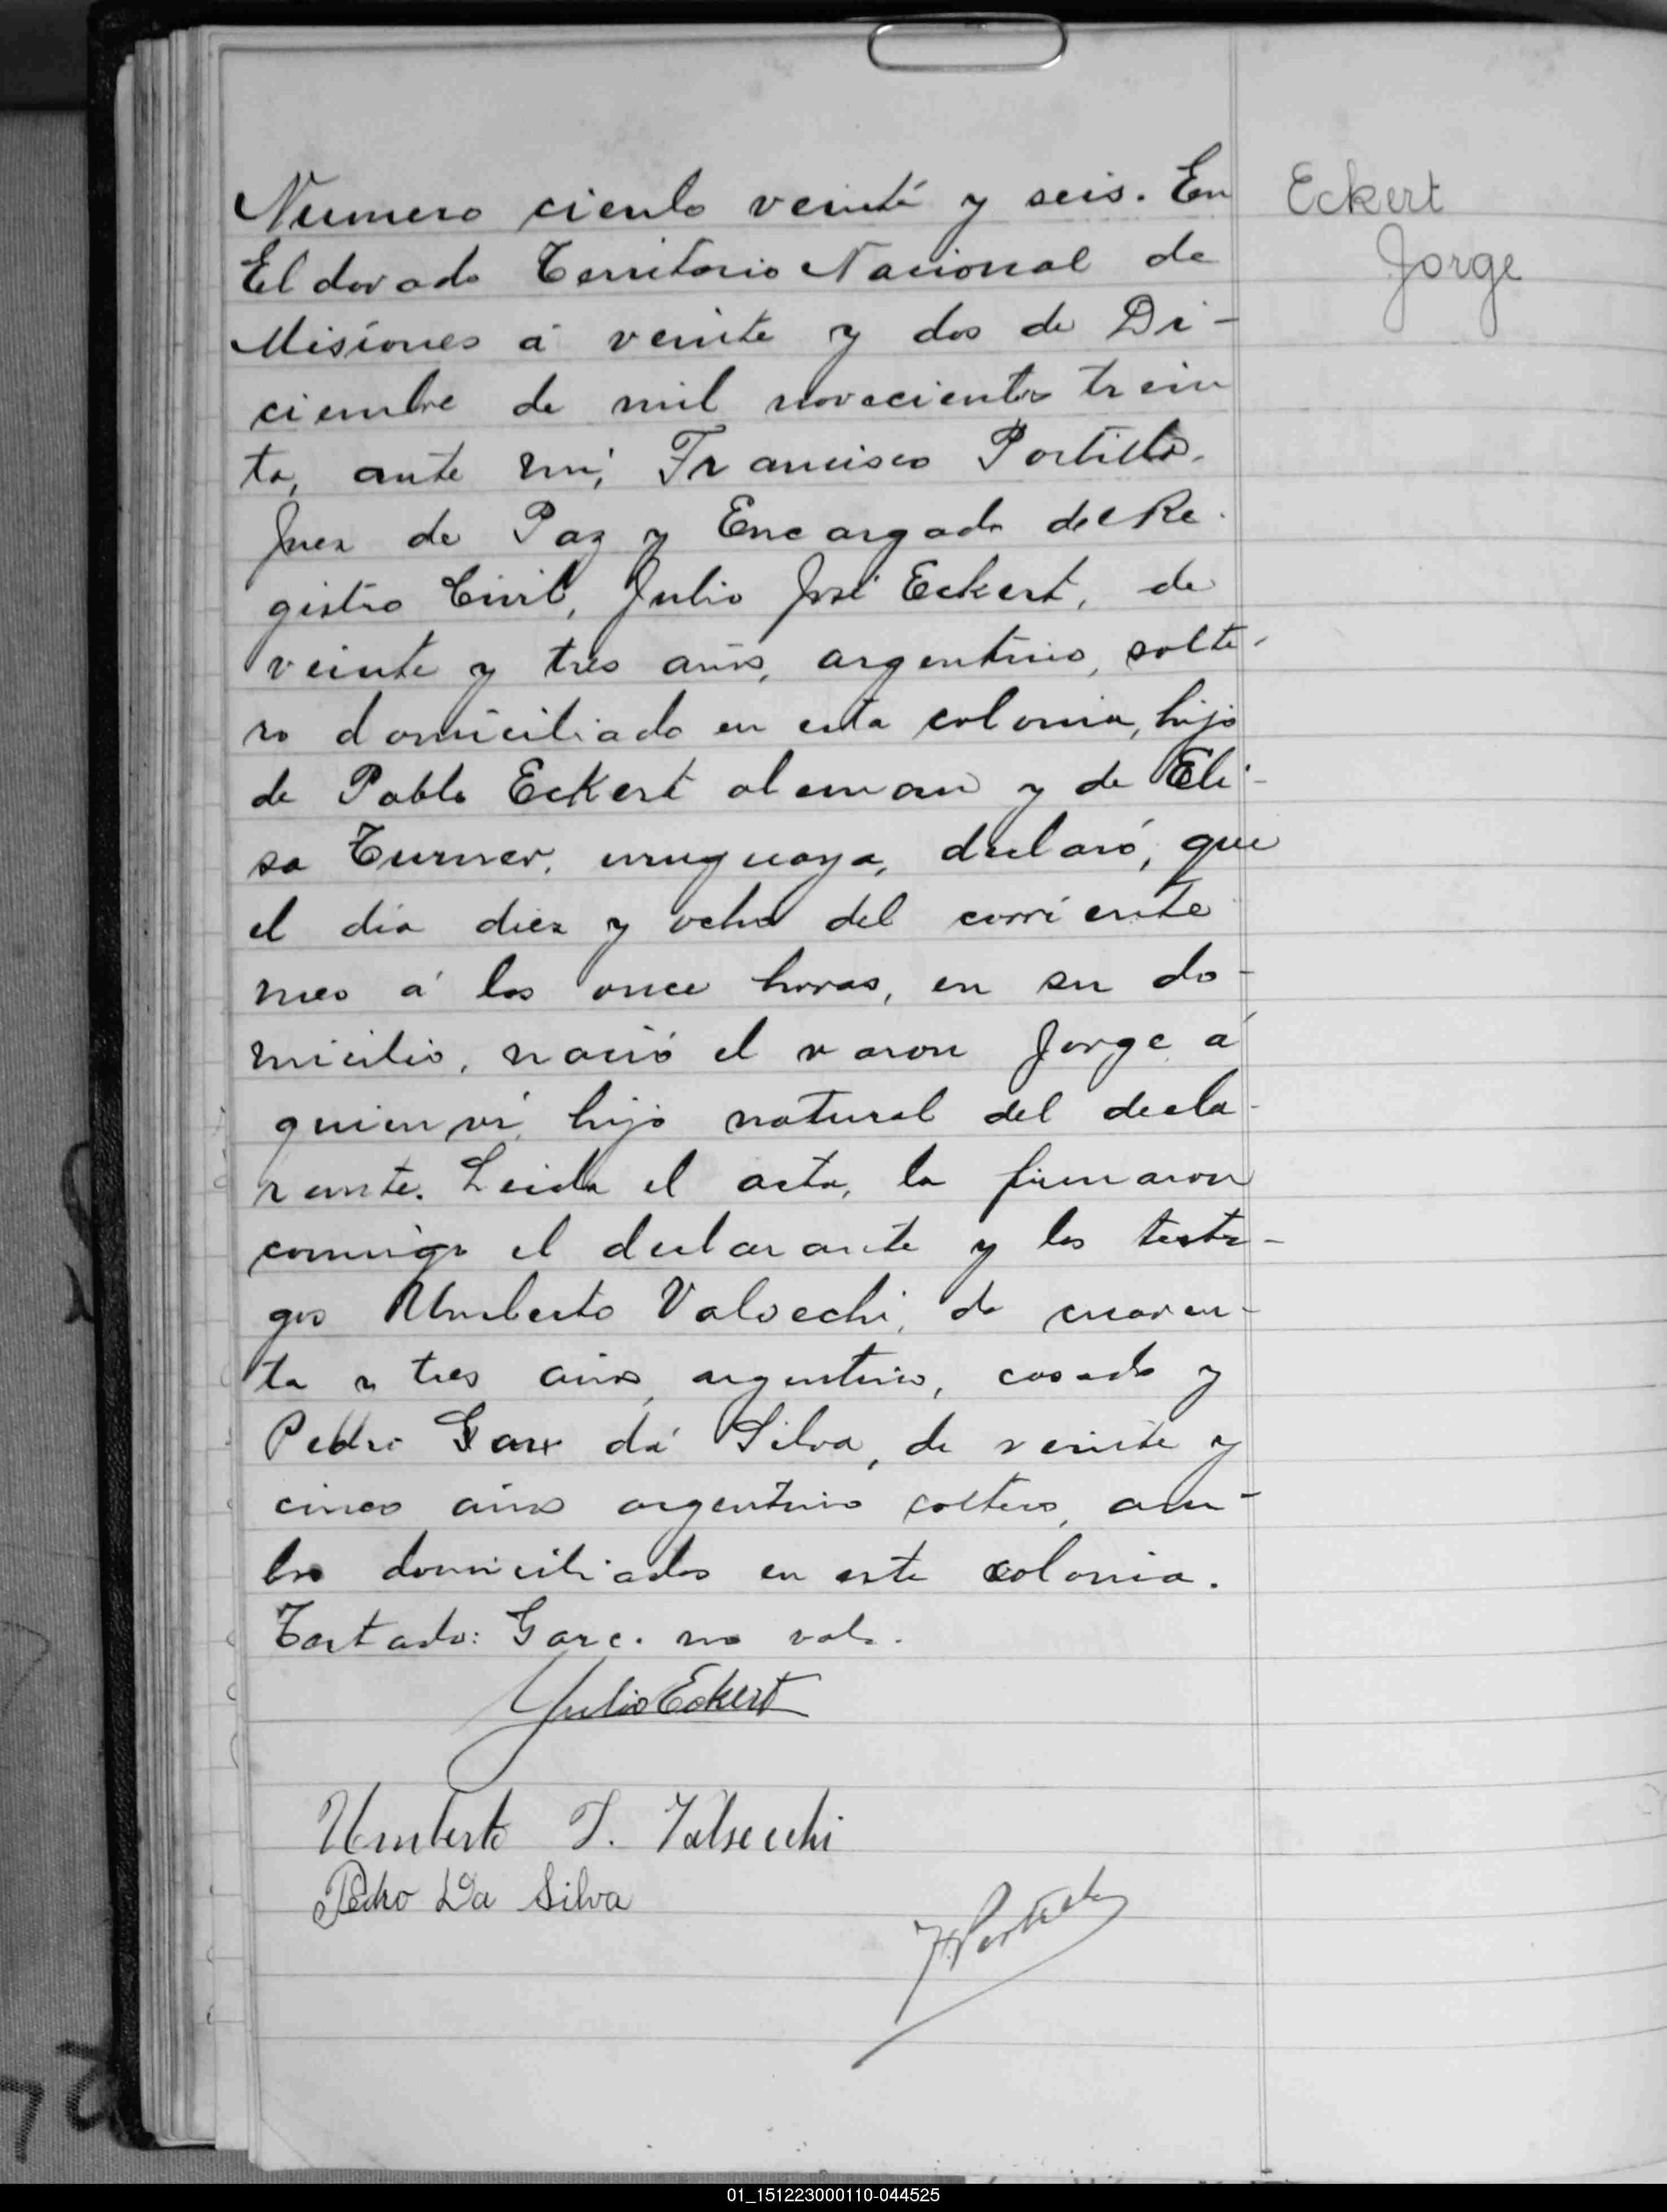 Numero ciento veinte y seis. En
Eckert
Eldorado Territorio Nacional de
Jorge
Misiones á veinte y dos de Di-
ciembre de mil novecientos trein
ta, ante mi, Francisco Portillo.
Juez de Paz y Encargado del Re-
gistro Civil, Julio José Eckert, de
veinte y tres años, argentino, solte-
ro domiciliado en esta colonia, hijo
de Pablo Eckert aleman y de Eli-
sa Turner, uruguaya, declaró, que
el dia diez y ocho del corriente
mes á las once horas, en su do-
micilio, nació el varon Jorge á
quien vi, hijo natural del decla-
rante. Leida el acta, la firmaron
conmigo el declarante y los testi-
gos Umberto Valsechi, de cuaren-
ta y tres años, argentino, casado y
Pedro Garc da Silva, de veinte y
cinco años argentino soltero, am-
bos domiciliados en esta colonia.
Testado: Garc. no vale.
Julio Eckert
Umberto T. Valsecchi
Pedro Da Silva
F. Portillo
01_151223000110-044525